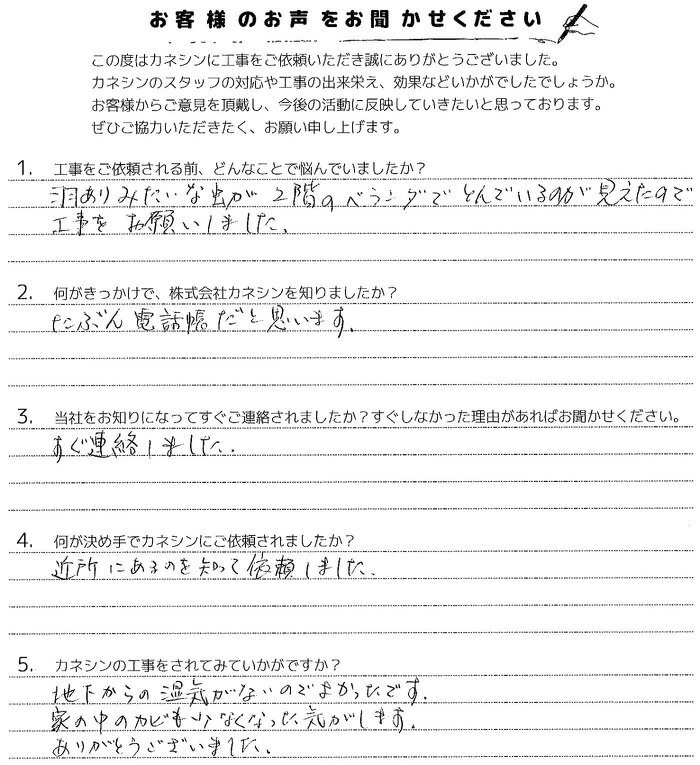 お客様のお声をお聞かせください
この度はカネシンに工事をご依頼いただき誠にありがとうございました。
カネシンのスタッフの対応や工事の出来栄え、効果などいかがでしたでしょうか。
お客様からご意見を頂戴し、今後の活動に反映していきたいと思っております。
ぜひご協力いただきたく、お願い申し上げます。
1. 工事をご依頼される前、どんなことで悩んでいましたか？
羽ありみたいな虫が2階のベランダでとんでいるのが見えたので
工事をお願いしました。
2. 何がきっかけで、株式会社カネシンを知りましたか？
たぶん電話帳だと思います。
3. 当社をお知りになってすぐご連絡されましたか？すぐしなかった理由があればお聞かせください。
すぐ連絡しました。
4. 何が決め手でカネシンにご依頼されましたか？
近所にあるのを知って依頼しました。
5. カネシンの工事をされてみていかがですか？
地下からの湿気がないのでよかったです。
家の中のカビも少なくなった気がします。
ありがとうございました。